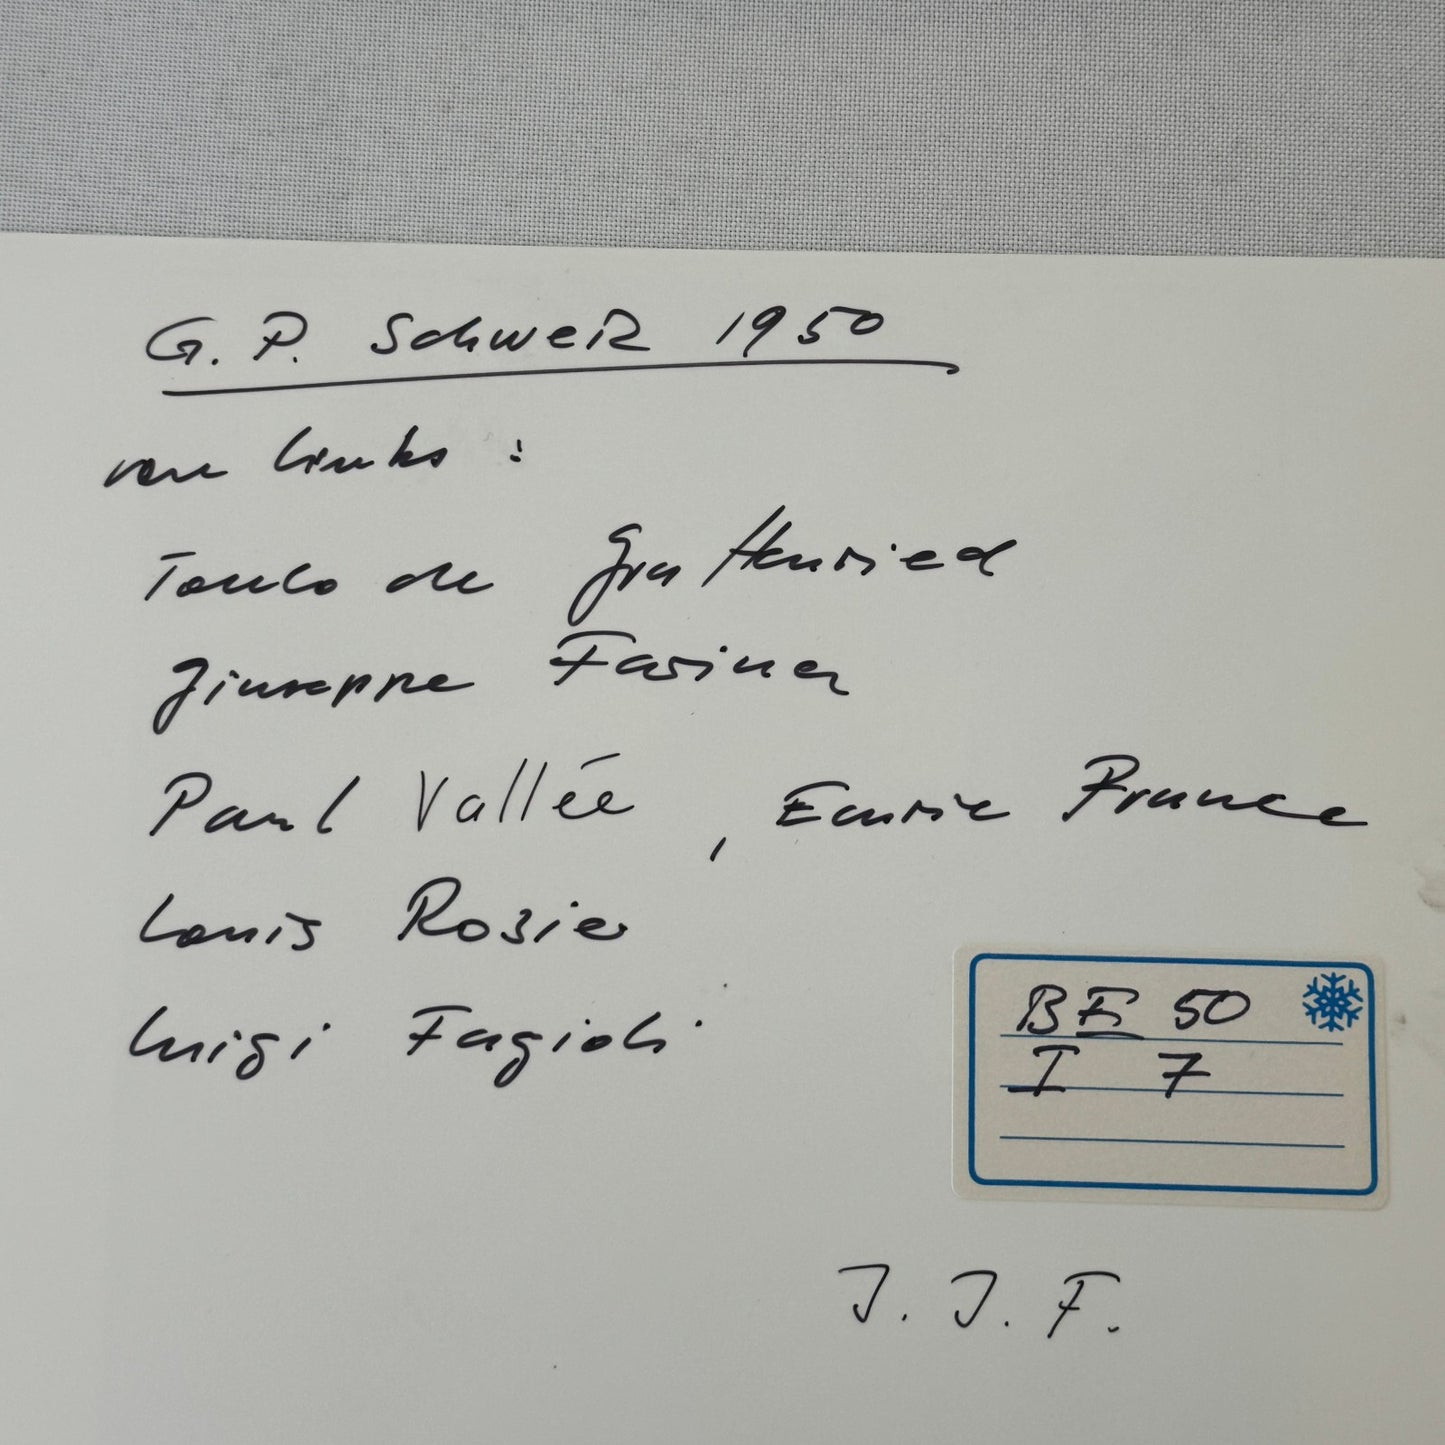 G. P. Schweiz 1950
von links :
Toulo de Graffenried
Giuseppe Farina
Paul Vallée , Ecurie France
Louis Rosier
Luigi Fagioli
BE 50
I 7
J. J. F.